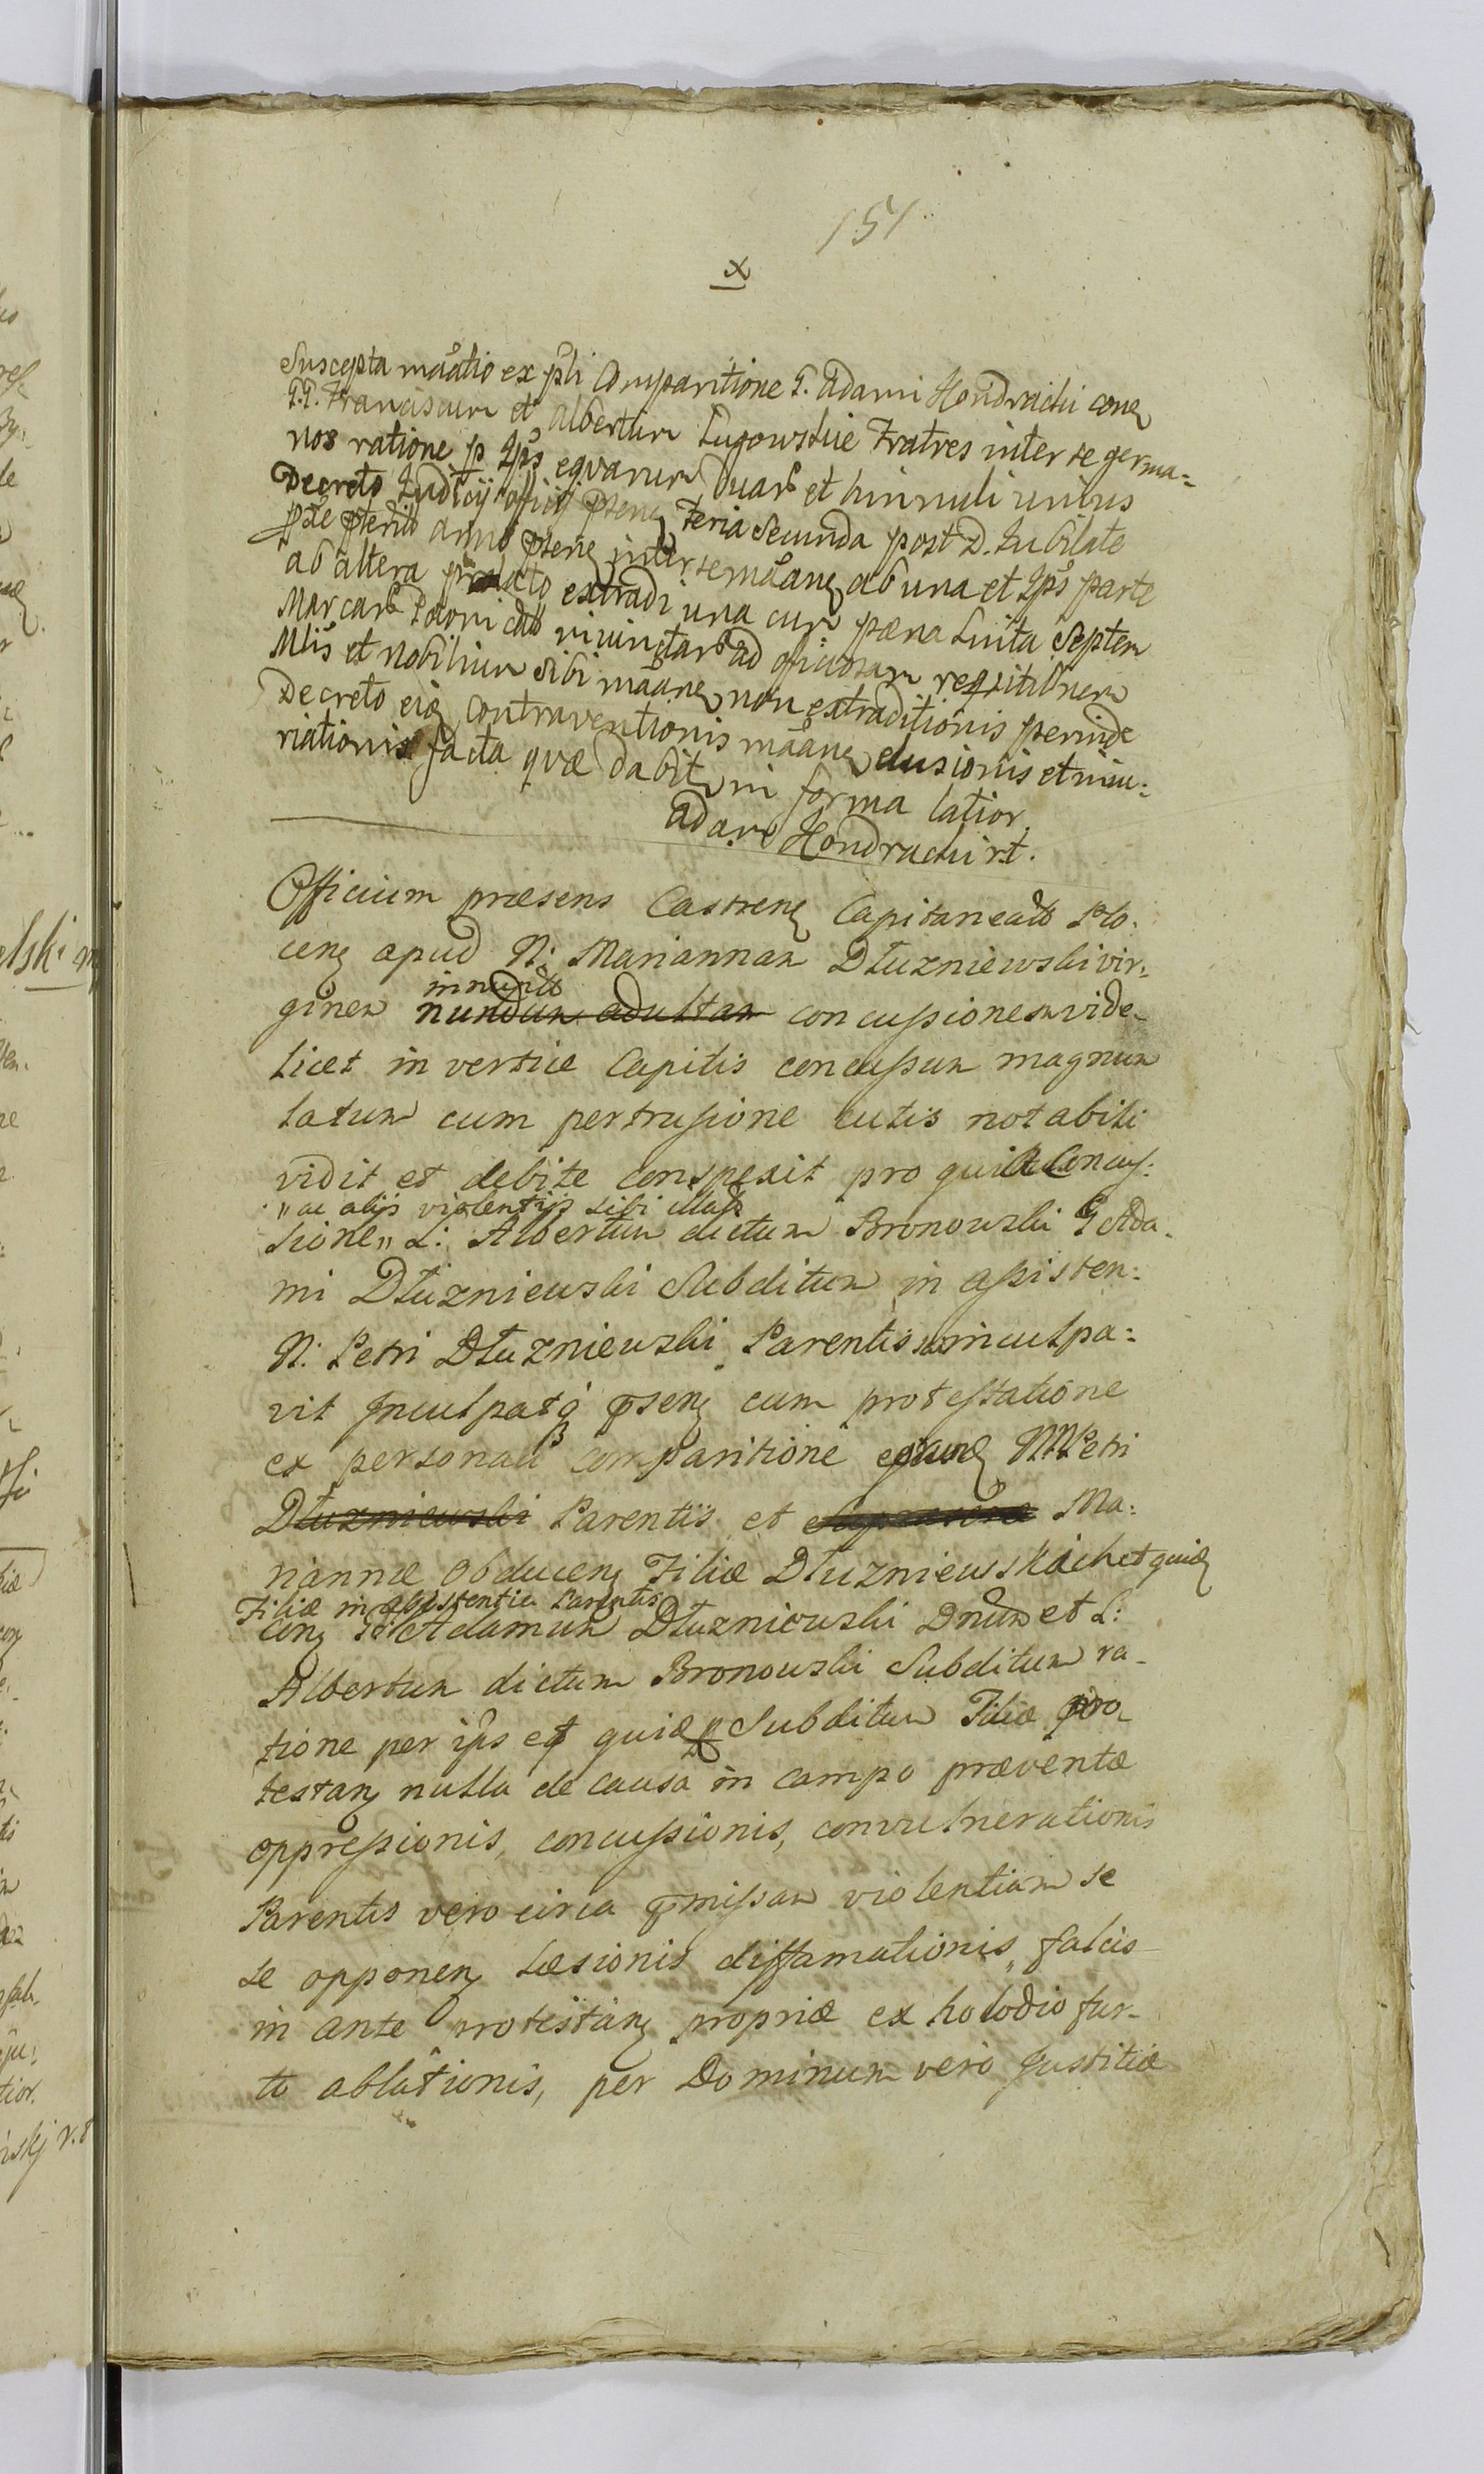 151
x
Suscepta māātio ex pſli Comparitione G. Adami Kondracki conq
G.G. Franciscum et Albertum Lugowskie Fratres inter se germa=
nos ratione p Ipſs eqvarum Duarƀ et hinnuli unius
Decreto Judicij officij pſenꝫ Feria Secunda post D. Jubilate
anno pſenꝫ inter se māanꝫ ab una et Ipſs parte
ab altera extradi una cum pæna Luita Septem
Marcarƀ ad officiosam reqsitionem
Mlis et Nobilium sibi māanꝫ non extraditionis perinde
Decreto eiꝫ Contraventionis māanꝫ elusionis et niu=
riationis facta qvæ dabit in forma latior.
Adam Kondracki rt.
Officium præsens Castrenꝫ Capitaneatt Plo=
cenꝫ apud N: Mariannam Dłuzniewski vir=
innuptt
ginem nundum adultam concussionem vide=
licet in vertice Capitis concussum magnum
latum cum pertrusione cutis notabili
vidit et debite conspexit pro quid Concus=
" ac alijs violentijs sibi illatƀ
sione " L: Albertum dictum Bronowski G Ada=
mi Dłuzniewski Subditum in assisten:
N: Petri Dłuzniewski Parentis sui inculpa=
vit Inculpatq pſenꝫ cum protestatione
ex personali comparitione NN Petri
Dłuzniewski Parentis et Ma=
riannæ Obducenꝫ Filiæ Dłuzniewskich et quidꝫ
Filiæ in assistentia Parentis
Adamum Dłuzniewski Dnum et L:
Albertum dictum Bronowski Subditum ra=
tione per ipſs et quidꝫ p Subditum Filiæ pro=
testanꝫ nulla de causa in campo præventæ
oppressionis, concussionis, convulnerationis
Parentis vero circa pmissam violentiam se
se opponenꝫ læsionis diffamationis, falcis
in ante protestanꝫ propriæ ex holodio fur=
to ablationis, per Dominum vero Justitiæ